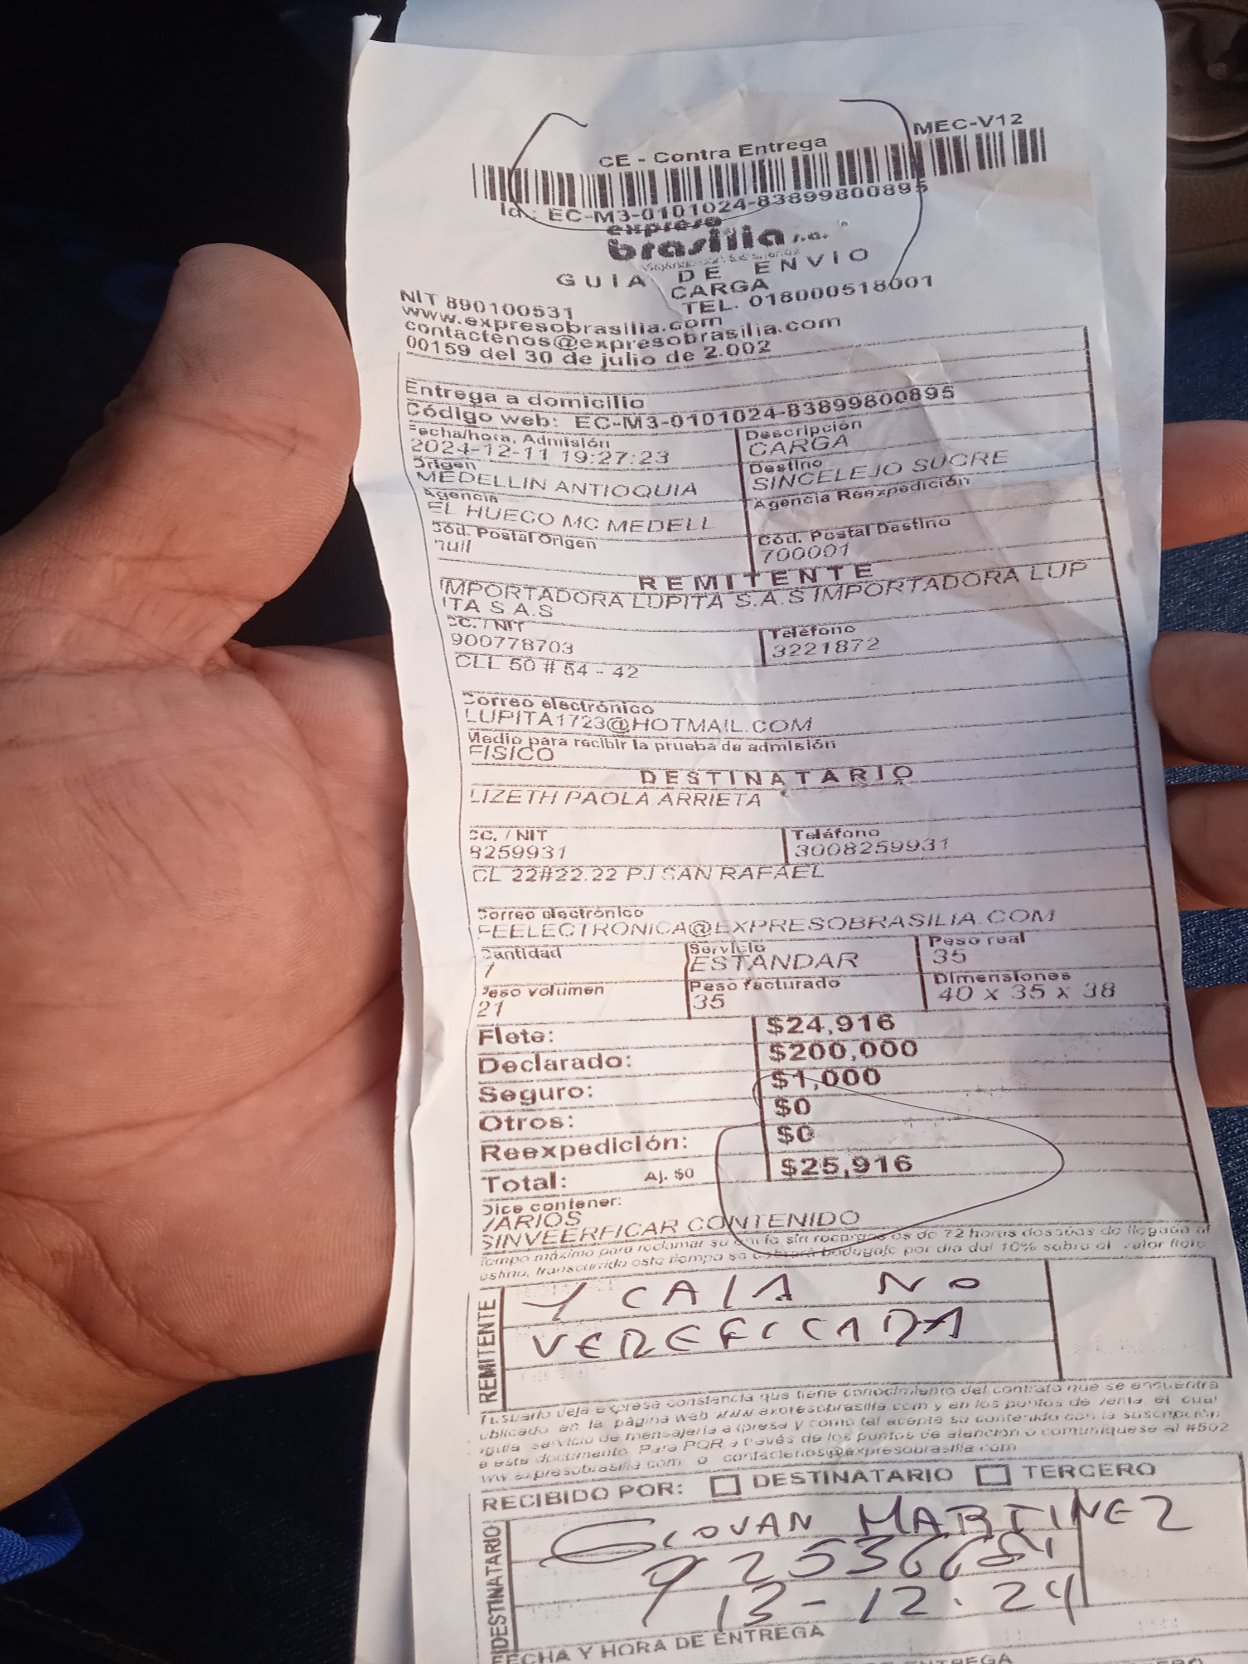 CE - Contra Entrega
MEC-V12
Id : EC-M3-0101024-83899800895
expreso
brasilia s.a.
GUIA DE ENVIO
CARGA
NIT 890100531
TEL. 018000518001
www.expresobrasilia.com
contactenos@expresobrasilia.com
00159 del 30 de julio de 2.002
Entrega a domicilio
Código web: EC-M3-0101024-83899800895
Fecha/hora, Admisión
Descripción
2024-12-11 19:27:23
CARGA
Origen
Destino
MEDELLIN ANTIOQUIA
SINCELEJO SUCRE
Agencia
Agencia Reexpedición
EL HUECO MC MEDELL
Cód. Postal Origen
Cód. Postal Destino
null
700001
REMITENTE
IMPORTADORA LUPITA S.A.S IMPORTADORA LUP
ITA S.A.S
CC. / NIT
Teléfono
900778703
3221872
CLL 50 # 54 - 42
Correo electrónico
LUPITA1723@HOTMAIL.COM
Medio para recibir la prueba de admisión
FISICO
DESTINATARIO
LIZETH PAOLA ARRIETA
CC. / NIT
Teléfono
8259931
3008259931
CL 22#22.22 PJ SAN RAFAEL
Correo electrónico
FEELECTRONICA@EXPRESOBRASILIA.COM
Cantidad
Servicio
Peso real
1
ESTANDAR
35
Peso volumen
Peso facturado
Dimensiones
21
35
40 x 35 x 38
Flete: $24,916
Declarado: $200,000
Seguro: $1,000
Otros: $0
Reexpedición: $0
Total: Aj. $0 $25,916
Dice contener:
VARIOS
SINVEERFICAR CONTENIDO
tiempo máximo para reclamar su es de 72 horas después de llegada al
destino, transcurrido este tiempo se cobrará bodegaje por día del 10% sobre el valor flete
REMITENTE
1 CAJA NO
VEREFICADA
El usuario deja expresa constancia que tiene conocimiento del contrato que se encuentra
publicado en la página web www.expresobrasilia.com y en los puntos de venta, el cual
regula servicio de mensajería expresa y como tal acepta su contenido con la suscripción
a este documento. Para PQR a través de los puntos de atención o comuníquese al #502
www.expresobrasilia.com o contactenos@expresobrasilia.com
RECIBIDO POR: DESTINATARIO TERCERO
DESTINATARIO
GIOVAN MARTINEZ
13-12.24
FECHA Y HORA DE ENTREGA